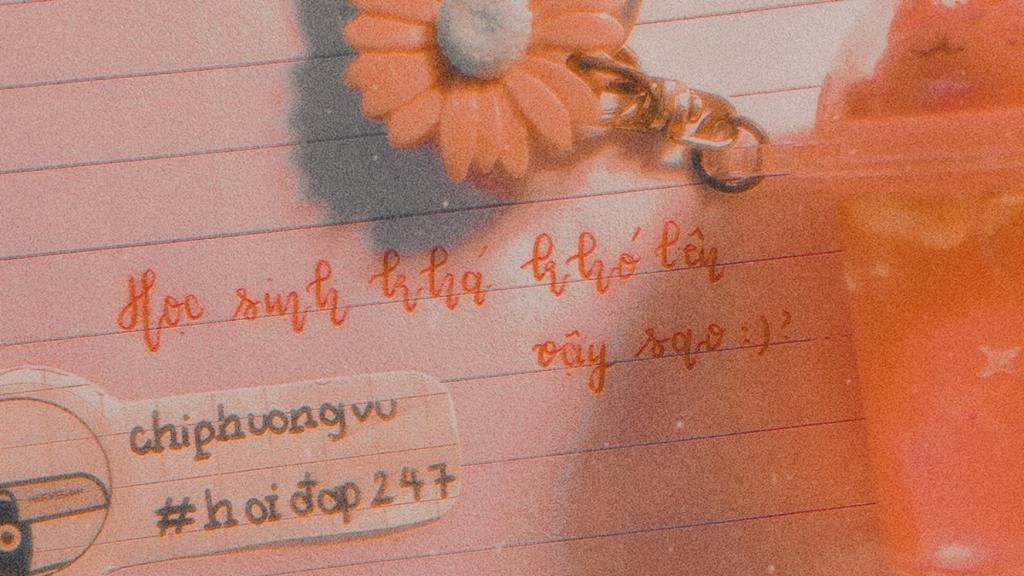 Học sinh khá khó lên
vậy sao :)?
chiphuongvu
#hoiđap247